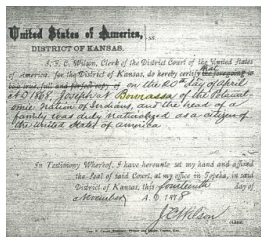 United States of America, ss.
DISTRICT OF KANSAS.
I, J. C. Wilson, Clerk of the District Court of the United States of
America, for the District of Kansas, do hereby certify that
on the 20th day of April
A.D. Joseph N Bourassa of the Potawat
omie Nation of Indians, and the head of a
family was duly naturalized as a citizen of
the United States of America
In Testimony Whereof, I have hereunto set my hand and affixed
the Seal of said Court, at my office in Topeka, in said
District of Kansas, this fourteenth day of
November A. D. 1878
J C Wilson
Clerk.